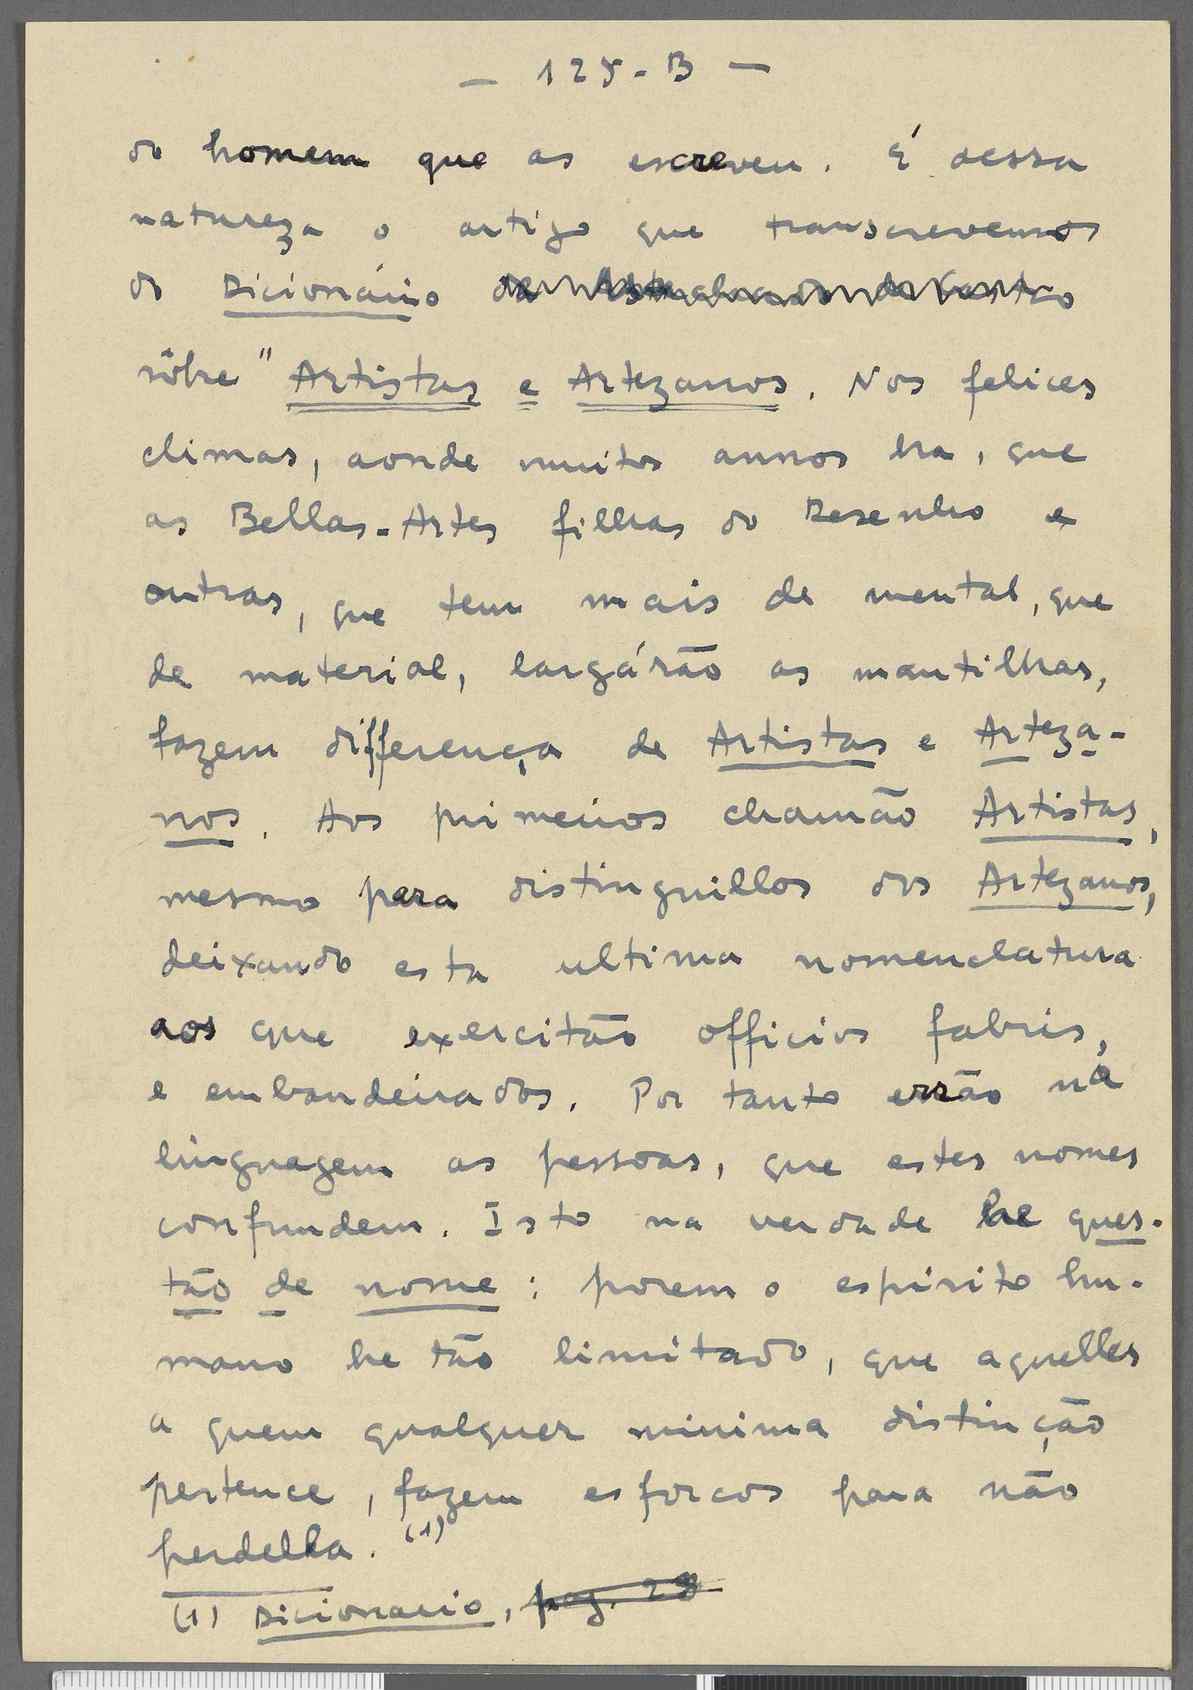 — 125-B —
do homem que as escreveu. É dessa
natureza o artigo que transcrevemos
do Dicionário de Machado de Castro
sôbre "Artistas e Artezanos. Nos felices
climas, aonde muitos annos ha, que
as Bellas-Artes filhas do Desenho e
outras, que tem mais de mental, que
de material, largárão as mantilhas,
fazem differença de Artistas e Arteza-
nos. Aos primeiros chamão Artistas,
mesmo para distinguillos dos Artezanos,
deixando esta ultima nomenclatura
aos que exercitão officios fabris,
e embandeirados. Por tanto errão na
linguagem as pessoas, que estes nomes
confundem. Isto na verdade he ques-
tão de nome: porem o espirito hu-
mano he tão limitado, que aquelles
a quem qualquer minima distinção
pertence, fazem esforcos para não
perdella. (1)
(1) Dicionario, pag. 28